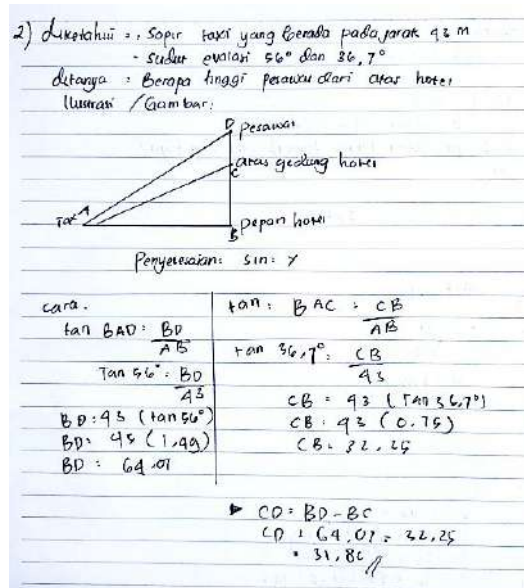 2) diketahui = . Sopir taxi yang berada pada jarak 43 m
- Sudut evalasi 56° dan 36,7°
ditanya : Berapa tinggi pesawat dari atas hotel
Ilustrasi / Gambar:
D pesawat
atas gedung hotel
C
Taxi A
B depan hotel
Penyelesaian: sin: y
cara.
tan BAD: BD
AB
Tan 56°: BD
43
BD: 43 (tan 56°)
BD: 43 (1,49)
BD : 64,07
tan: BAC : CB
AB
tan 36,7°: CB
43
CB = 43 (Tan 36,7°)
CB: 43 (0.75)
CB: 32,25
CD: BD - BC
CD : 64,07 - 32,25
= 31,82